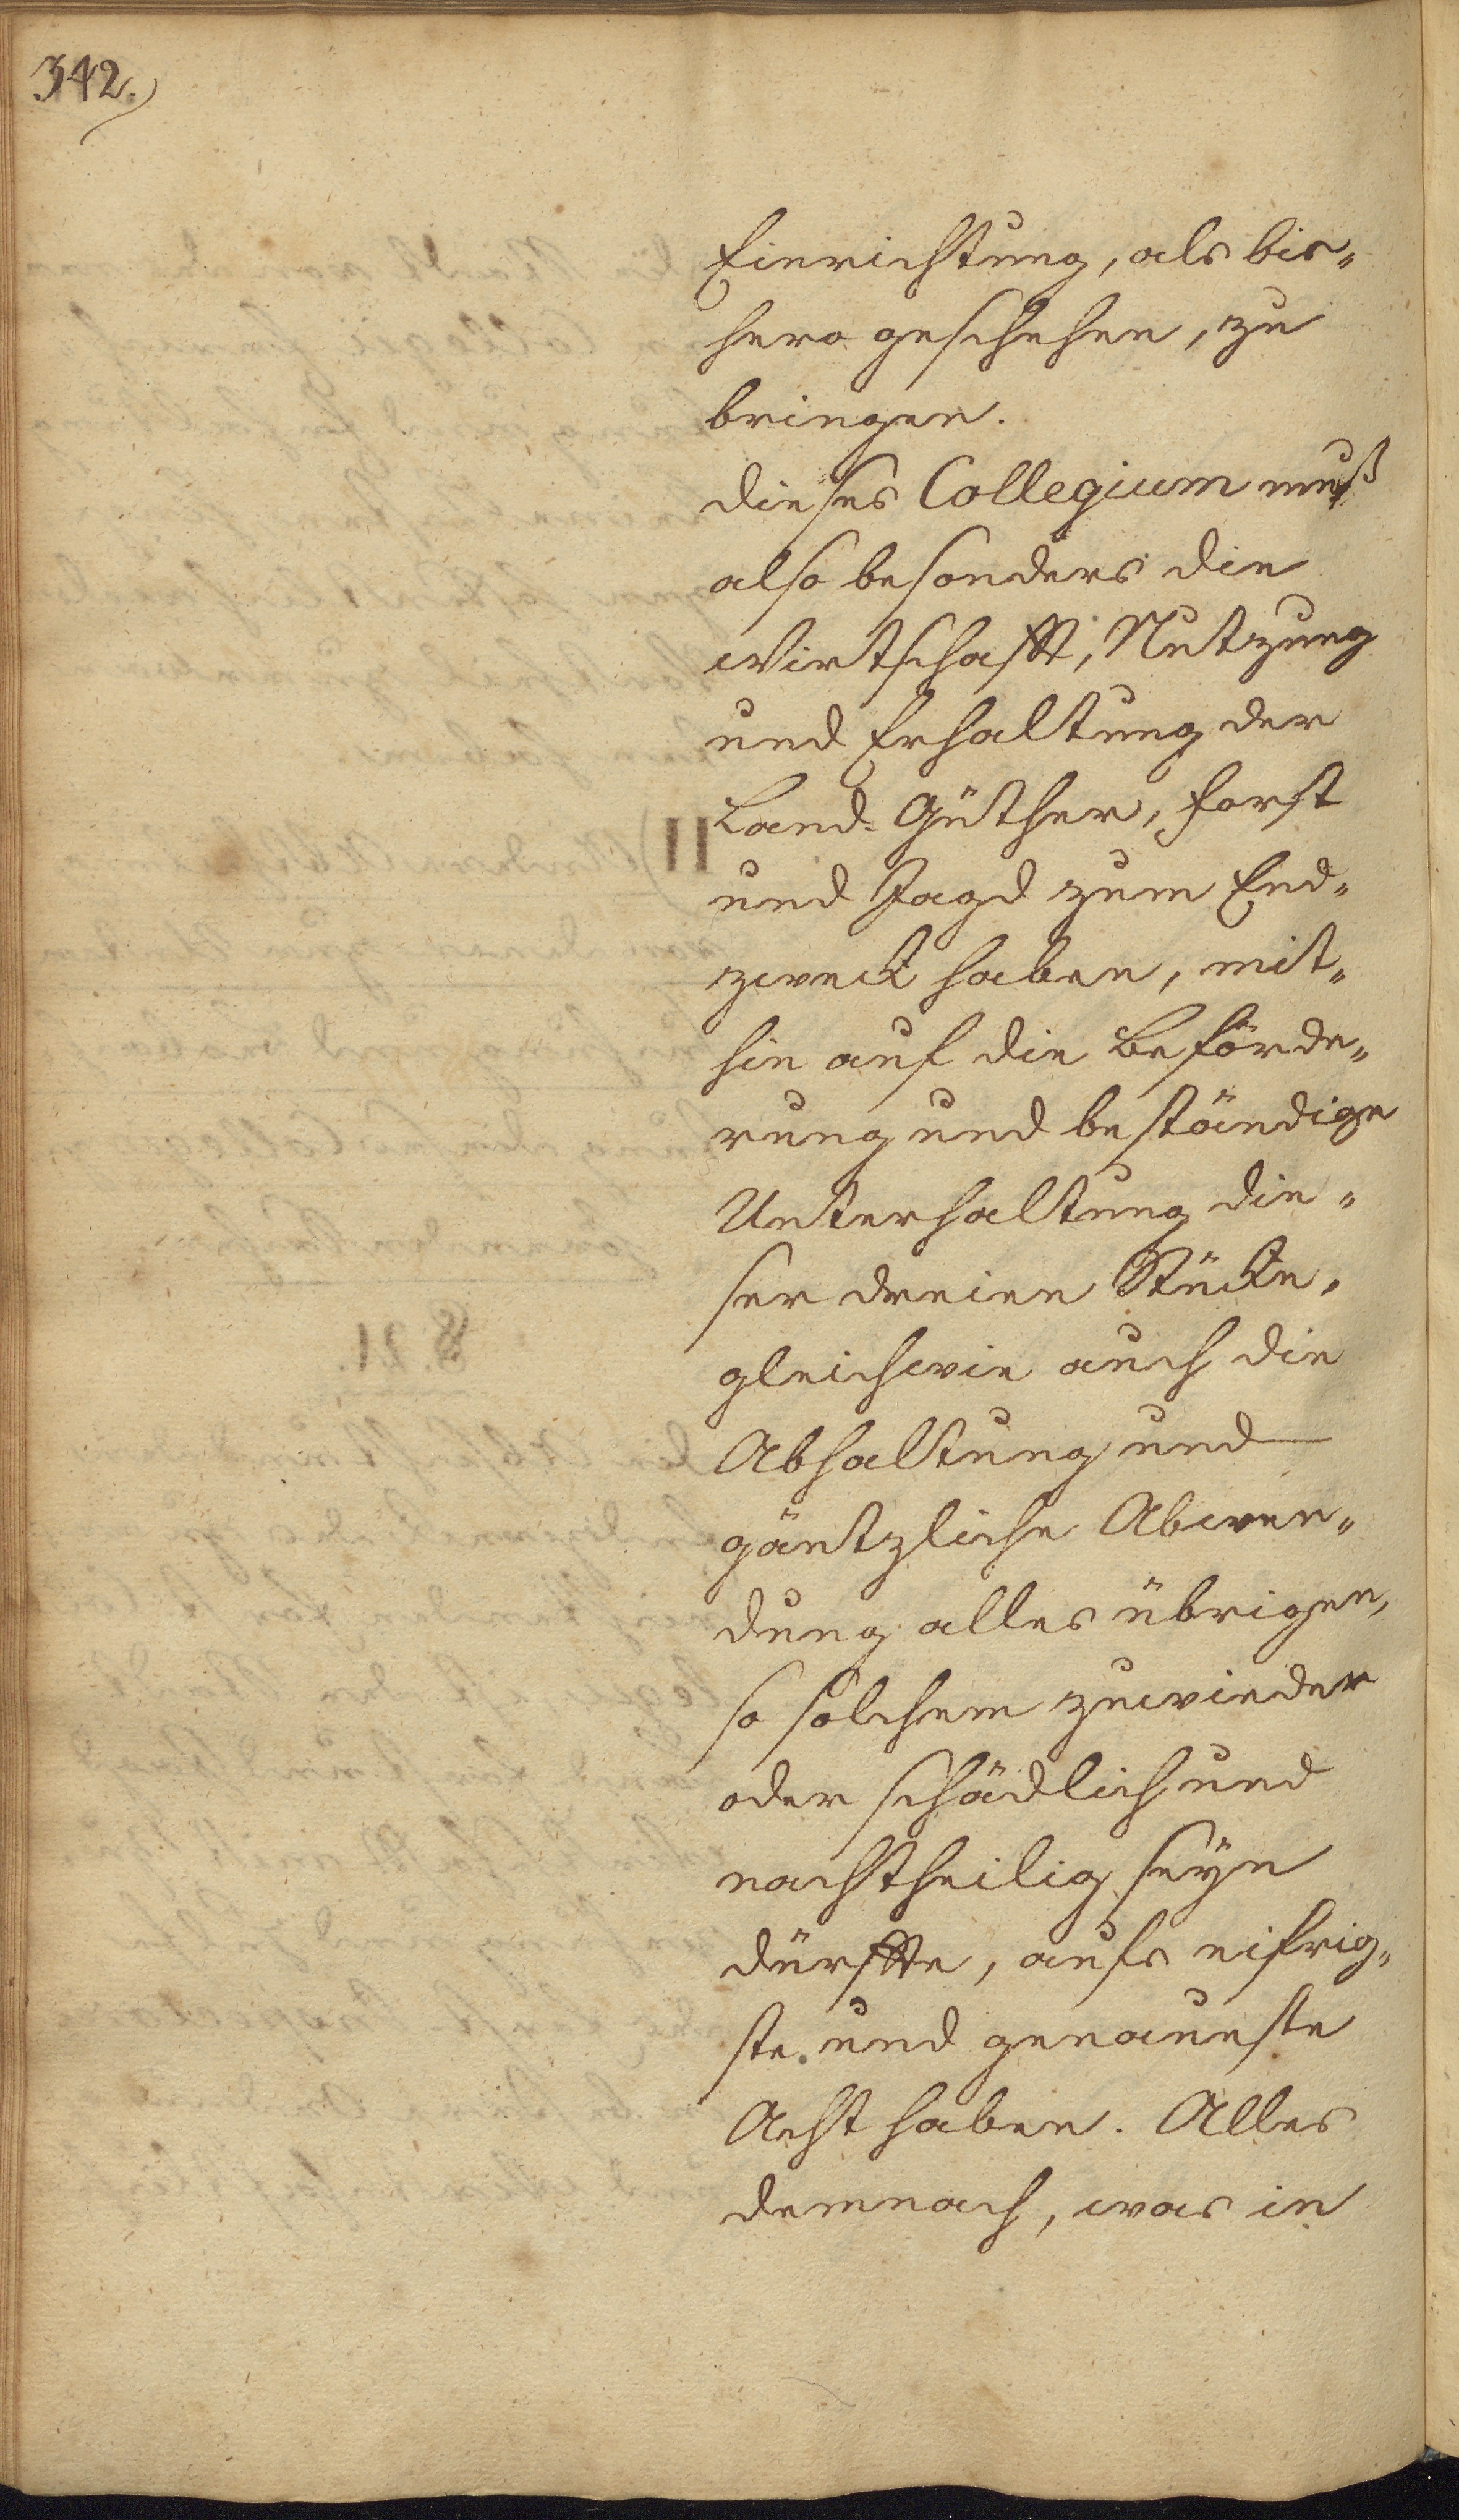 342.
Einrichtung, als bis„
hero geschehen, zu
bringen.
dieses Collegium muß
also besonders die
Wirtschafft, Nutzung
und Erhaltung der
Land-Güther, Forst
und Jagd zum End„
zweck haben, mit„
hin auf die Beförde„
rung und beständige
Unterhaltung die„
ser dreien Stücke,
gleichwie auch die
Abhaltung und
gäntzliche Abwen„
dung alles übrigen,
so solchem zuwieder
oder schädlich und
nachtheilig seÿn
dürffte, aufs eifrig„
ste und genaueste
Acht haben. Alles
demnach, was in